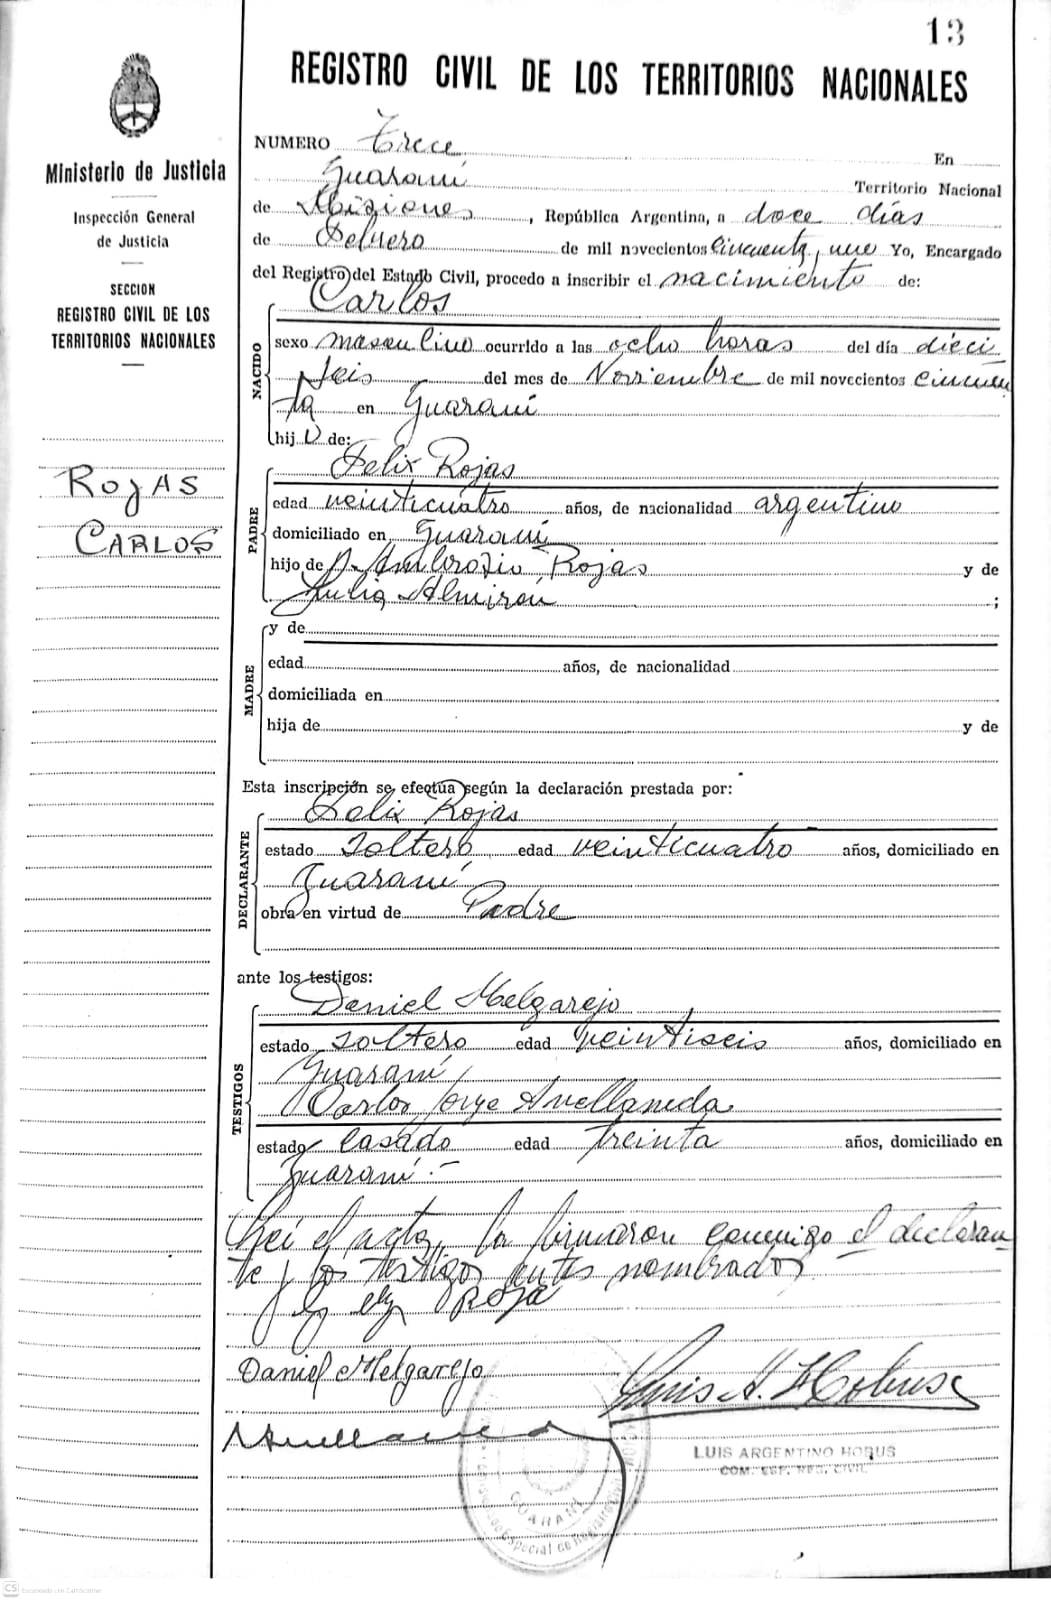 13
REGISTRO CIVIL DE LOS TERRITORIOS NACIONALES
Ministerio de Justicia
Inspección General
de Justicia
SECCION
REGISTRO CIVIL DE LOS
TERRITORIOS NACIONALES
ROJAS
CARLOS
NUMERO Trece En
Guaraní Territorio Nacional
de Misiones, República Argentina, a doce días
de Febrero de mil novecientos cincuenta, uno Yo, Encargado
del Registro del Estado Civil, procedo a inscribir el nacimiento de:
Carlos
NACIDO
sexo masculino ocurrido a las ocho horas del día dieci
seis del mes de Noviembre de mil novecientos cincuen
ta en Guaraní
hij o de:
Felix Rojas
PADRE
edad veinticuatro años, de nacionalidad argentino
domiciliado en Guaraní
hijo de Ambrosio Rojas y de
Julia Almirón ;
MADRE
y de
edad años, de nacionalidad
domiciliada en
hija de y de
Esta inscripción se efectúa según la declaración prestada por:
Felix Rojas
DECLARANTE
estado soltero edad veinticuatro años, domiciliado en
Guaraní
obra en virtud de Padre
ante los testigos:
Daniel Melgarejo
TESTIGOS
estado soltero edad veintiseis años, domiciliado en
Guaraní
Carlos Jorge Avellaneda
estado casado edad treinta años, domiciliado en
Guaraní.-
Leí el acta, la firmaron conmigo el declaran
te y los testigos antes nombrados
Daniel Melgarejo
Luis A. Hobus
Avellaneda
LUIS ARGENTINO HOBUS
COM. ESP. REG. CIVIL
GUARANI
CS Escaneado con CamScanner